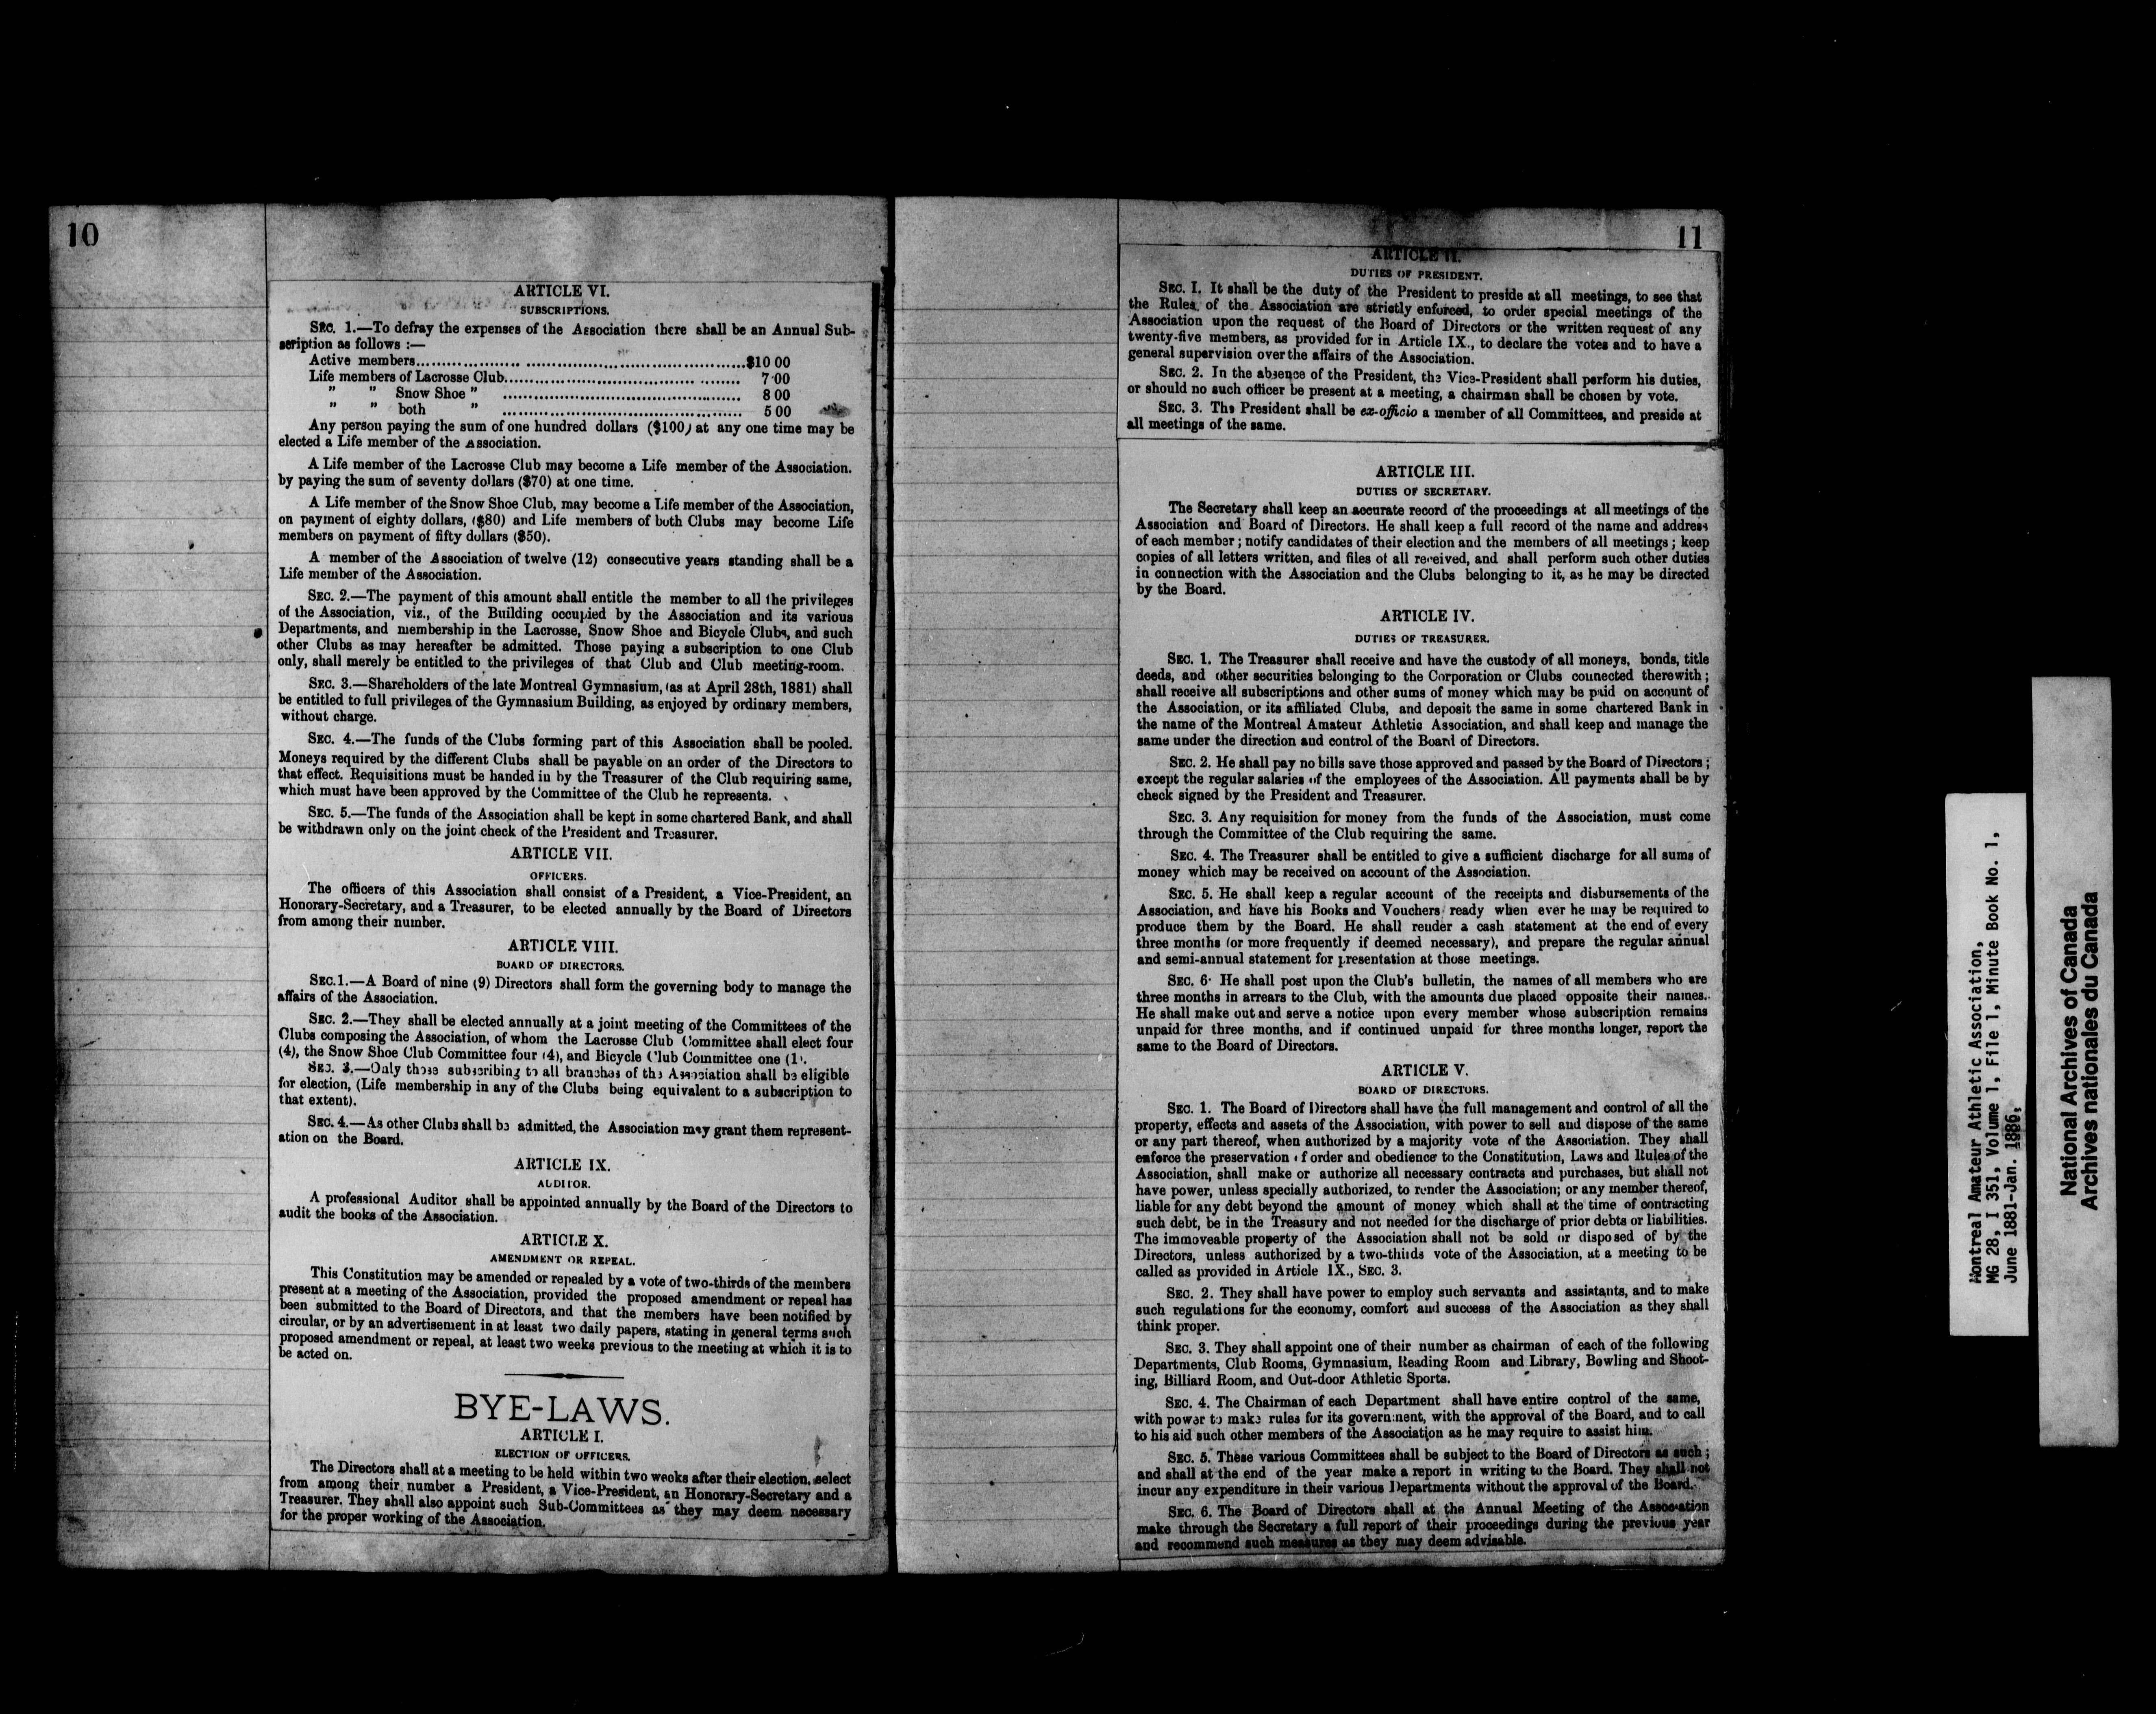 10
ARTICLE VI.
SUBSCRIPTIONS.
SEC. 1.—To defray the expenses of the Association there shall be an Annual Sub-
scription as follows :—
Active members........................................................................$10 00
Life members of Lacrosse Club............................................... 7 00
" " Snow Shoe " ............................................... 8 00
" " both " ............................................... 5 00
Any person paying the sum of one hundred dollars ($100) at any one time may be
elected a Life member of the Association.
A Life member of the Lacrosse Club may become a Life member of the Association.
by paying the sum of seventy dollars ($70) at one time.
A Life member of the Snow Shoe Club, may become a Life member of the Association,
on payment of eighty dollars, ($80) and Life members of both Clubs may become Life
members on payment of fifty dollars ($50).
A member of the Association of twelve (12) consecutive years standing shall be a
Life member of the Association.
SEC. 2.—The payment of this amount shall entitle the member to all the privileges
of the Association, viz., of the Building occupied by the Association and its various
Departments, and membership in the Lacrosse, Snow Shoe and Bicycle Clubs, and such
other Clubs as may hereafter be admitted. Those paying a subscription to one Club
only, shall merely be entitled to the privileges of that Club and Club meeting-room.
SEC. 3.—Shareholders of the late Montreal Gymnasium, (as at April 28th, 1881) shall
be entitled to full privileges of the Gymnasium Building, as enjoyed by ordinary members,
without charge.
SEC. 4.—The funds of the Clubs forming part of this Association shall be pooled.
Moneys required by the different Clubs shall be payable on an order of the Directors to
that effect. Requisitions must be handed in by the Treasurer of the Club requiring same,
which must have been approved by the Committee of the Club he represents.
SEC. 5.—The funds of the Association shall be kept in some chartered Bank, and shall
be withdrawn only on the joint check of the President and Treasurer.
ARTICLE VII.
OFFICERS.
The officers of this Association shall consist of a President, a Vice-President, an
Honorary-Secretary, and a Treasurer, to be elected annually by the Board of Directors
from among their number.
ARTICLE VIII.
BOARD OF DIRECTORS.
SEC.1.—A Board of nine (9) Directors shall form the governing body to manage the
affairs of the Association.
SEC. 2.—They shall be elected annually at a joint meeting of the Committees of the
Clubs composing the Association, of whom the Lacrosse Club Committee shall elect four
(4), the Snow Shoe Club Committee four (4), and Bicycle Club Committee one (1).
SEC. 3.—Only those subscribing to all branches of the Association shall be eligible
for election, (Life membership in any of the Clubs being equivalent to a subscription to
that extent).
SEC. 4.—As other Clubs shall be admitted, the Association may grant them represent-
ation on the Board.
ARTICLE IX.
AUDITOR.
A professional Auditor shall be appointed annually by the Board of the Directors to
audit the books of the Association.
ARTICLE X.
AMENDMENT OR REPEAL.
This Constitution may be amended or repealed by a vote of two-thirds of the members
present at a meeting of the Association, provided the proposed amendment or repeal has
been submitted to the Board of Directors, and that the members have been notified by
circular, or by an advertisement in at least two daily papers, stating in general terms such
proposed amendment or repeal, at least two weeks previous to the meeting at which it is to
be acted on.
BYE-LAWS.
ARTICLE I.
ELECTION OF OFFICERS.
The Directors shall at a meeting to be held within two weeks after their election, select
from among their number a President, a Vice-President, an Honorary-Secretary and a
Treasurer. They shall also appoint such Sub-Committees as they may deem necessary
for the proper working of the Association.
11
ARTICLE II.
DUTIES OF PRESIDENT.
SEC. I. It shall be the duty of the President to preside at all meetings, to see that
the Rules of the Association are strictly enforced, to order special meetings of the
Association upon the request of the Board of Directors or the written request of any
twenty-five members, as provided for in Article IX., to declare the votes and to have a
general supervision over the affairs of the Association.
SEC. 2. In the absence of the President, the Vice-President shall perform his duties,
or should no such officer be present at a meeting, a chairman shall be chosen by vote.
SEC. 3. The President shall be ex-officio a member of all Committees, and preside at
all meetings of the same.
ARTICLE III.
DUTIES OF SECRETARY.
The Secretary shall keep an accurate record of the proceedings at all meetings of the
Association and Board of Directors. He shall keep a full record of the name and address
of each member ; notify candidates of their election and the members of all meetings ; keep
copies of all letters written, and files of all received, and shall perform such other duties
in connection with the Association and the Clubs belonging to it, as he may be directed
by the Board.
ARTICLE IV.
DUTIES OF TREASURER.
SEC. 1. The Treasurer shall receive and have the custody of all moneys, bonds, title
deeds, and other securities belonging to the Corporation or Clubs connected therewith ;
shall receive all subscriptions and other sums of money which may be paid on account of
the Association, or its affiliated Clubs, and deposit the same in some chartered Bank in
the name of the Montreal Amateur Athletic Association, and shall keep and manage the
same under the direction and control of the Board of Directors.
SEC. 2. He shall pay no bills save those approved and passed by the Board of Directors ;
except the regular salaries of the employees of the Association. All payments shall be by
check signed by the President and Treasurer.
SEC. 3. Any requisition for money from the funds of the Association, must come
through the Committee of the Club requiring the same.
SEC. 4. The Treasurer shall be entitled to give a sufficient discharge for all sums of
money which may be received on account of the Association.
SEC. 5. He shall keep a regular account of the receipts and disbursements of the
Association, and have his Books and Vouchers ready when ever he may be required to
produce them by the Board. He shall render a cash statement at the end of every
three months (or more frequently if deemed necessary), and prepare the regular annual
and semi-annual statement for presentation at those meetings.
SEC. 6· He shall post upon the Club's bulletin, the names of all members who are
three months in arrears to the Club, with the amounts due placed opposite their names.
He shall make out and serve a notice upon every member whose subscription remains
unpaid for three months, and if continued unpaid for three months longer, report the
same to the Board of Directors.
ARTICLE V.
BOARD OF DIRECTORS.
SEC. 1. The Board of Directors shall have the full management and control of all the
property, effects and assets of the Association, with power to sell and dispose of the same
or any part thereof, when authorized by a majority vote of the Association. They shall
enforce the preservation of order and obedience to the Constitution, Laws and Rules of the
Association, shall make or authorize all necessary contracts and purchases, but shall not
have power, unless specially authorized, to render the Association; or any member thereof,
liable for any debt beyond the amount of money which shall at the time of contracting
such debt, be in the Treasury and not needed for the discharge of prior debts or liabilities.
The immoveable property of the Association shall not be sold or disposed of by the
Directors, unless authorized by a two-thirds vote of the Association, at a meeting to be
called as provided in Article IX., SEC. 3.
SEC. 2. They shall have power to employ such servants and assistants, and to make
such regulations for the economy, comfort and success of the Association as they shall
think proper.
SEC. 3. They shall appoint one of their number as chairman of each of the following
Departments, Club Rooms, Gymnasium, Reading Room and Library, Bowling and Shoot-
ing, Billiard Room, and Out-door Athletic Sports.
SEC. 4. The Chairman of each Department shall have entire control of the same,
with power to make rules for its government, with the approval of the Board, and to call
to his aid such other members of the Association as he may require to assist him.
SEC. 5. These various Committees shall be subject to the Board of Directors as such ;
and shall at the end of the year make a report in writing to the Board. They shall not
incur any expenditure in their various Departments without the approval of the Board.
SEC. 6. The Board of Directors shall at the Annual Meeting of the Association
make through the Secretary a full report of their proceedings during the previous year
and recommend such measures as they may deem advisable.
Montreal Amateur Athletic Association,
MG 28, I 351, Volume 1, File 1, Minute Book No. 1,
June 1881-Jan. 1886,
National Archives of Canada
Archives nationales du Canada